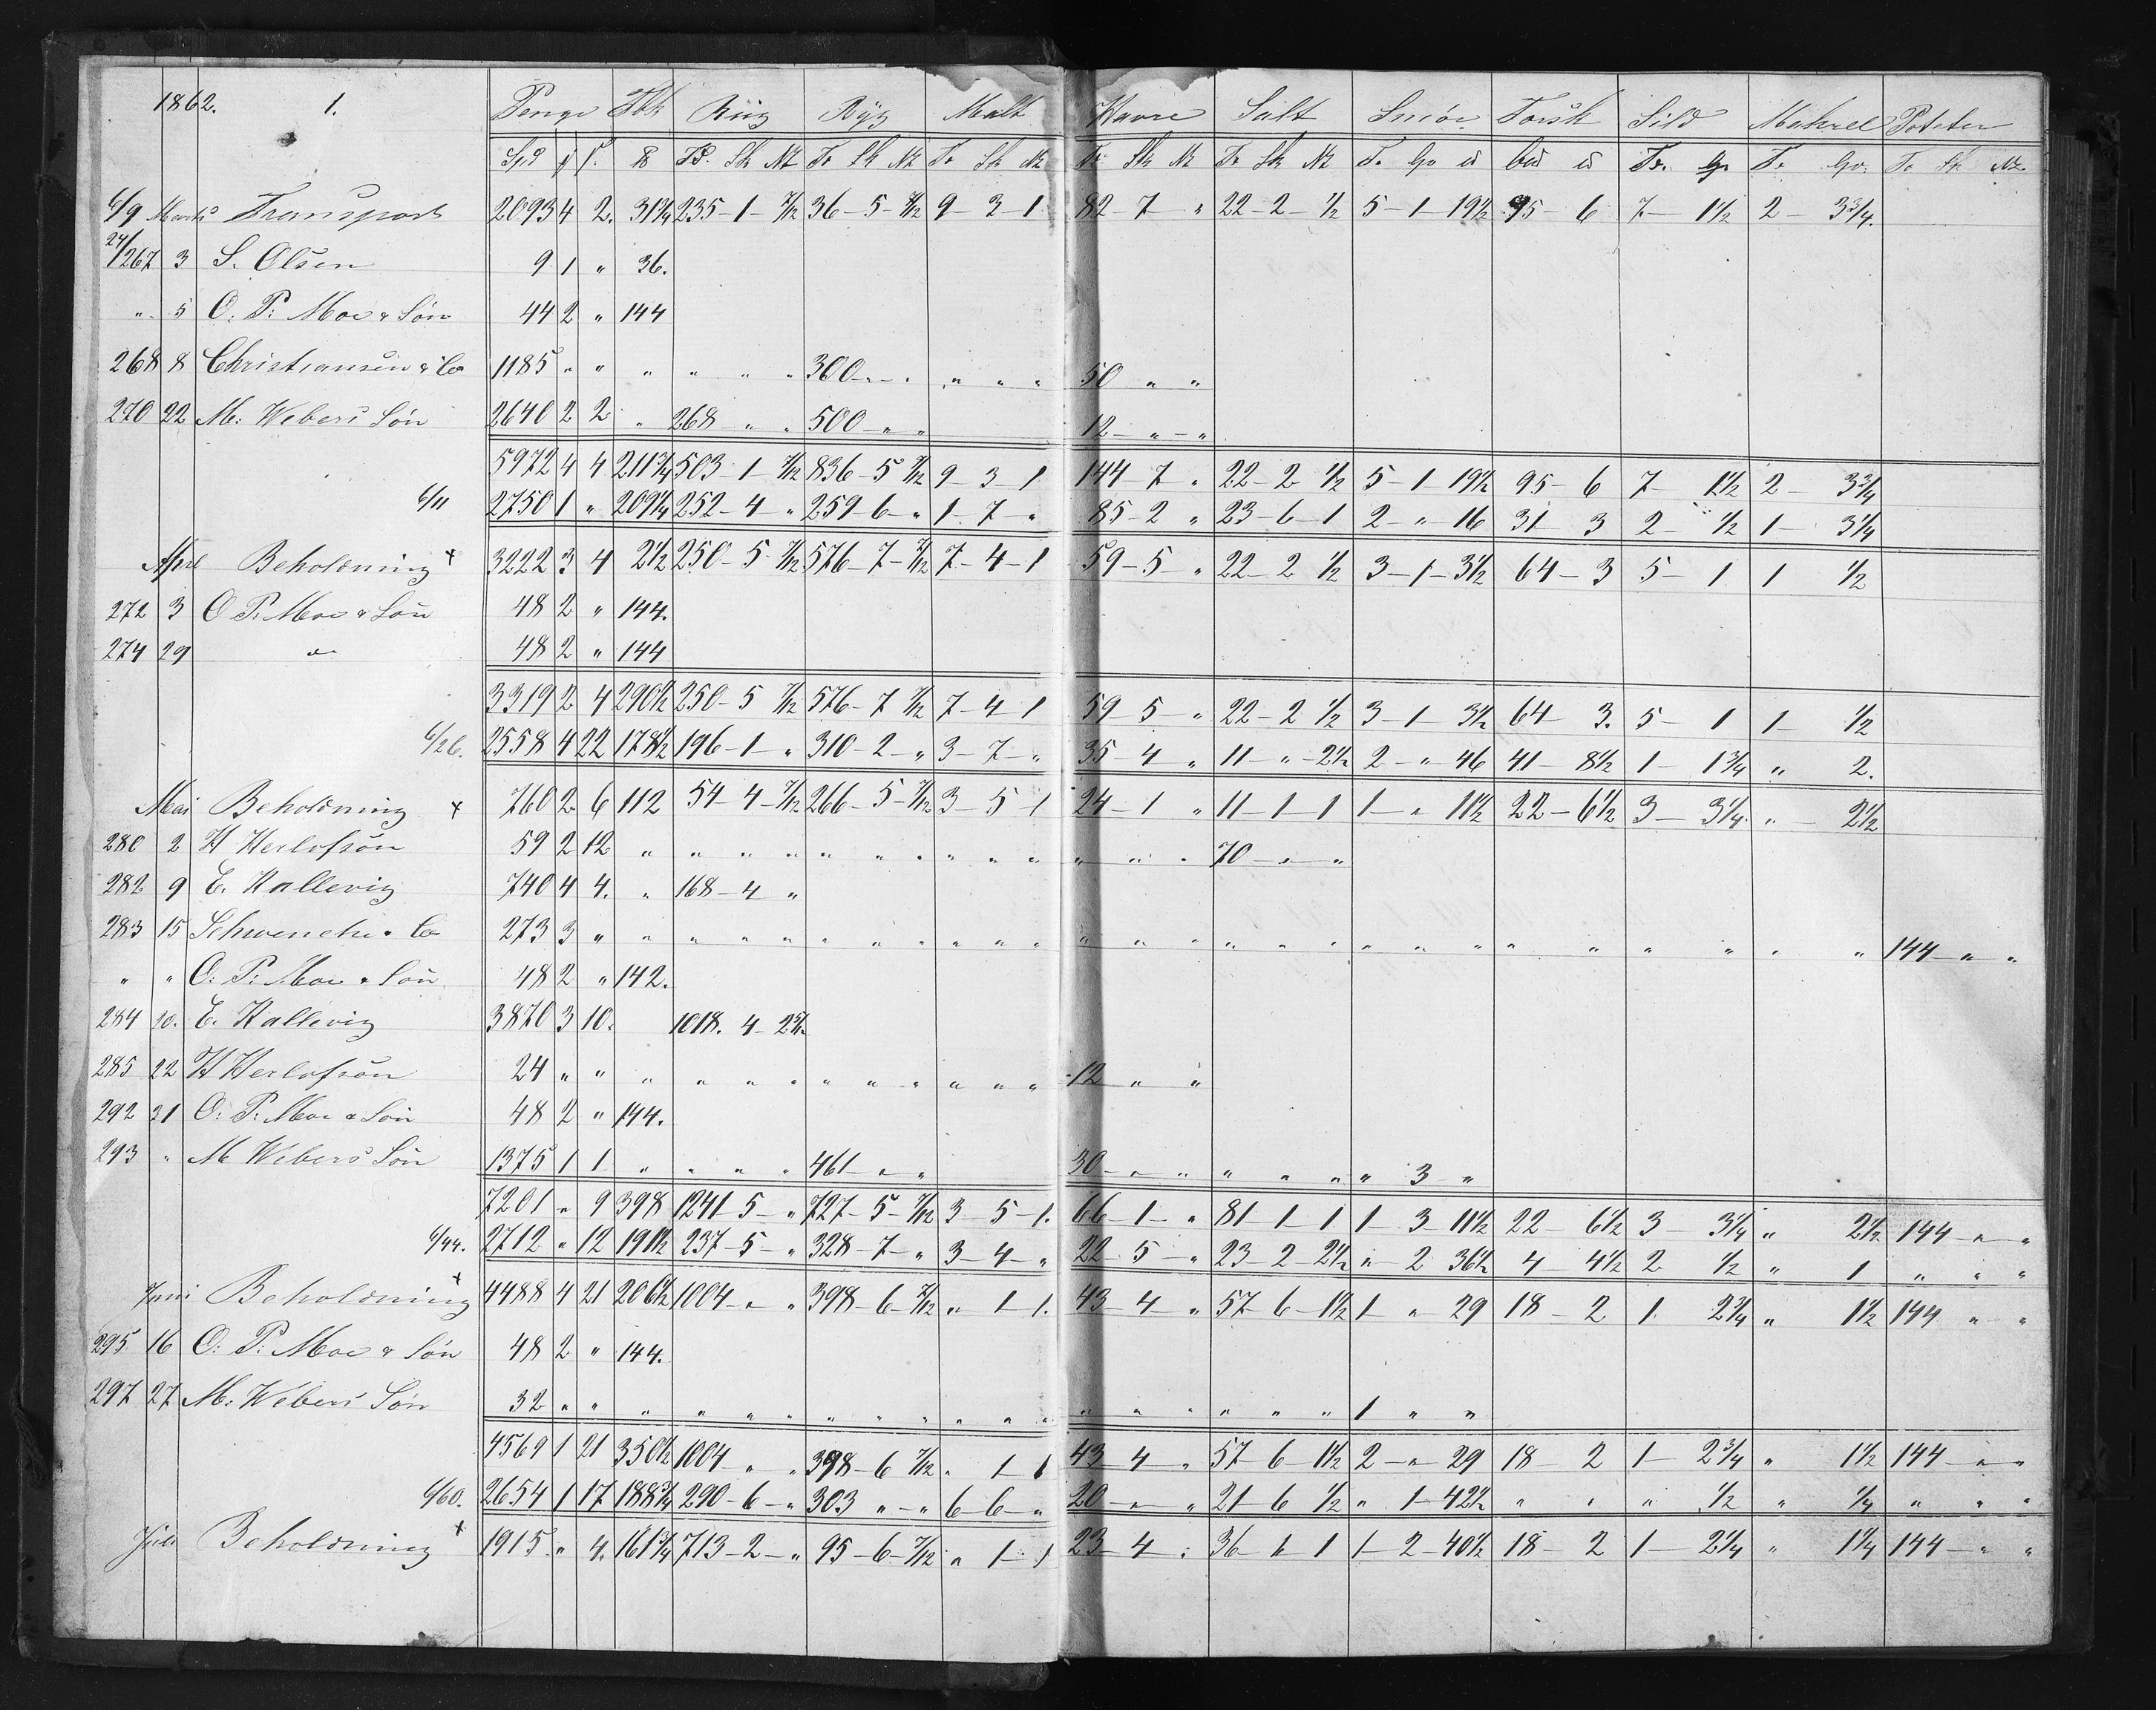 1862. 1. Penge Tbk Rüg Byg Malt Havre Salt Smör Torsk Sild Makrel Poteter
6/9 Marts Transport 2093 4 2. 31 3/4 235-1-7/12 36-5-7/12 9-3-1 82-7-" 22-2-1/2 5-1-19 1/2 95-6 7-1 1/2 2-3 3/4.
24/267 3 S. Olsen 9 1 " 36.
" 5 O: P: Moe & Søn 44 2 " 144
268 8 Christiansen & Co 1185 " " " " " " 300 " " " " " 50 " "
270 22 M: Webers Søn 2640 2 2 " 268 " " 500 " " 12 " "
5972 4 4 211 3/4 503-1-7/12 836-5-7/12 9-3-1 144-7-" 22-2-1/2 5-1-19 1/2 95-6 7-1 1/2 2-3 3/4
6/11 2750 1 " 209 1/4 252-4-" 259-6-" 1-7-" 85-2-" 23-6-1 2-"-16 31-3 2-1/2 1-3 1/4
April Beholdning + 3222 3 4 2 1/2 250-5-7/12 576-7-7/12 7-4-1 59-5-" 22-2-1/2 3-1-3 1/2 64-3 5-1 1-1/2
272 3 O P. Moe & Søn 48 2 " 144.
274 29 " 48 2 " 144
3319 2 4 290 1/2 250-5-7/12 576-7-7/12 7-4-1 59-5-" 22-2-1/2 3-1-3 1/2 64-3. 5-1 1-1/2
6/26. 2558 4 22 178 1/2 196-1-" 310-2-" 3-7-" 35-4-" 11-"-2 1/2 2-"-46 41-8 1/2 1-1 3/4 " 2.
Mai Beholdning + 760 2 6 112 54-4-7/12 266-5-7/12 3-5-1 24-1-" 11-1-1 1-"-11 1/2 22-6 1/2 3-3 1/4 " 2 1/2
280 2 H Herlofson 59 2 12 " " " " " " " " " " " " " 70-"-"
282 9 E. Kallevig 740 4 4. " 168-4-"
283 15 Schwencke & Co 273 3 " " " " " " " " " " " " " " " " " " " " " " " " " 144-"-"
" " O: P: Moe & Søn 48 2 " 142.
284 20. E. Kallevig 3870 3 10. 1018. 4-2
285 22 H Herlofson 24 " " " " " " " " " " " " 12 " "
292 31 O: P: Moe & Søn 48 2 " 144.
293 " M Webers Søn 1375 1 1 " " " " 461 " " 30 " " " " " " 3 "
7201 " 9 398 1241-5-" 727-5-7/12 3-5-1. 66-1-" 81-1-1 1-3-11 1/2 22-6 1/2 3-3 1/4 " 2 1/2 144-"-"
6/44. 2712 " 12 191 1/2 237-5-" 328-7-" 3-4-" 22-5-" 23-2-2 1/2 "-2-36 1/2 4-4 1/2 2 1/2 " 1 " " "
Juni Beholdning + 4488 4 21 206 1/2 1004-"-" 398-6-7/12 "-1-1. 43-4-" 57-6-1 1/2 1-"-29 18-2 1. 2 3/4 " 1 1/2 144 " "
295 16 O: P: Moe & Søn 48 2 " 144.
297 27 M: Webers Søn 32 " " " " " " " " " " " " " " " " " " 1 " "
4569 1 21 350 1/2 1004 " " 398-6-7/12 " 1-1 43-4-" 57-6-1 1/2 2-"-29 18-2 1-2 3/4 " 1 1/2 144-"-"
6/60. 2654 1 17 188 3/4 290-6-" 303 "-" 6-6-" 20-"-" 21-6-1/2 "-1-42 1/2 " " " 1/2 " 1/4 " " "
Juli Beholdning + 1915 " 4. 161 3/4 713-2-" 95-6-7/12 " 1-1 23-4-" 36-1-1 1-2-40 1/2 18-2 1-2 1/4 " 1 1/4 144-"-"